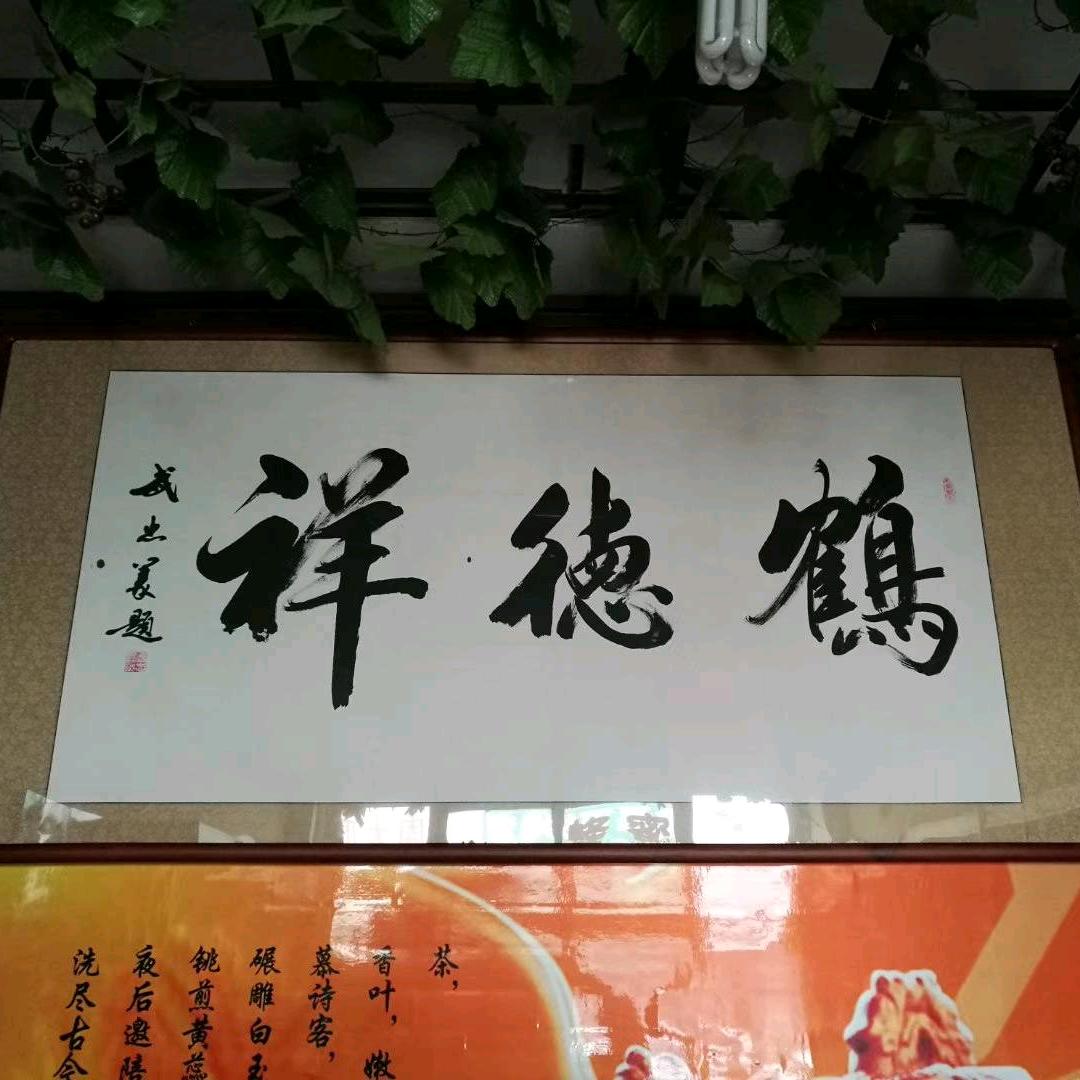 鹤德祥
武忠义题
茶，
香叶，嫩
慕诗客，
碾雕白玉
铫煎黄蕊
夜后邀陪
洗尽古今